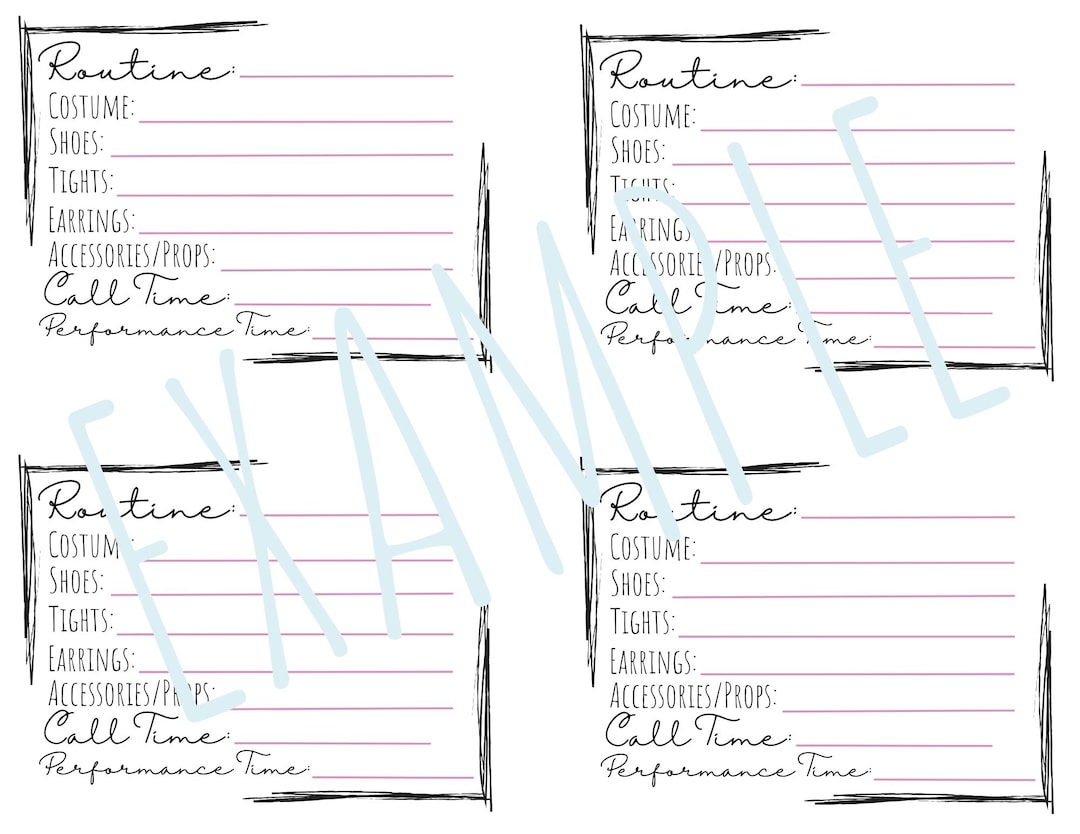 Routine:
Costume:
Shoes:
Tights:
Earrings:
Accessories/Props:
Call Time:
Performance Time:
Routine:
Costume:
Shoes:
Tights:
Earrings:
Accessories/Props:
Call Time:
Performance Time:
EXAMPLE
Routine:
Costume:
Shoes:
Tights:
Earrings:
Accessories/Props:
Call Time:
Performance Time:
Routine:
Costume:
Shoes:
Tights:
Earrings:
Accessories/Props:
Call Time:
Performance Time: